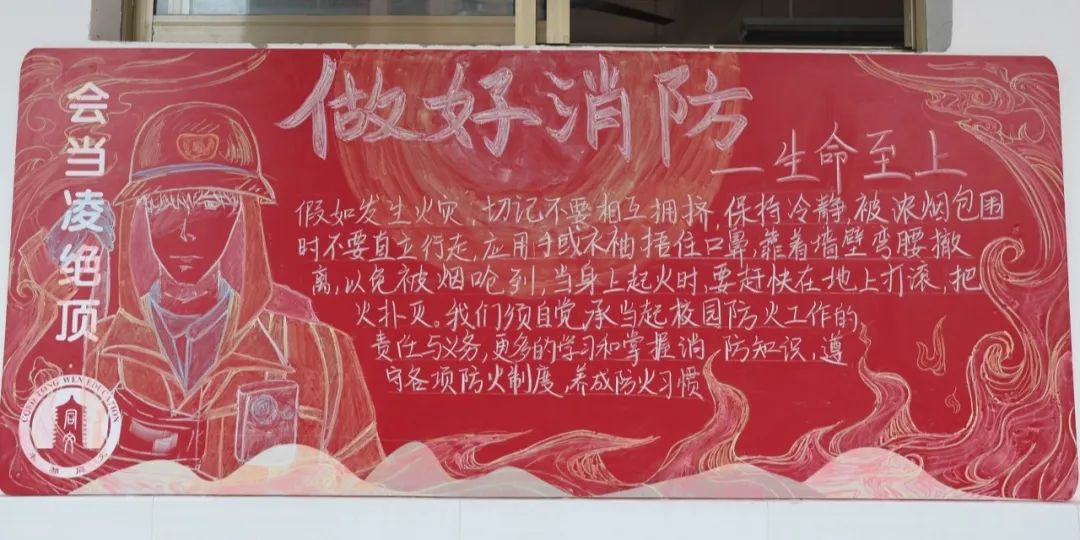 会当凌绝顶
做好消防
—生命至上
假如发生火灾,切记不要相互拥挤,保持冷静,被浓烟包围
时不要直立行走,应用手或衣袖捂住口鼻,靠着墙壁弯腰撤
离,以免被烟呛到,当身上起火时,要赶快在地上打滚,把
火扑灭。我们须自觉承当起校园防火工作的
责任与义务,更多的学习和掌握消 防知识,遵
守各项防火制度,养成防火习惯
TONG WEN EDUCATION
同文